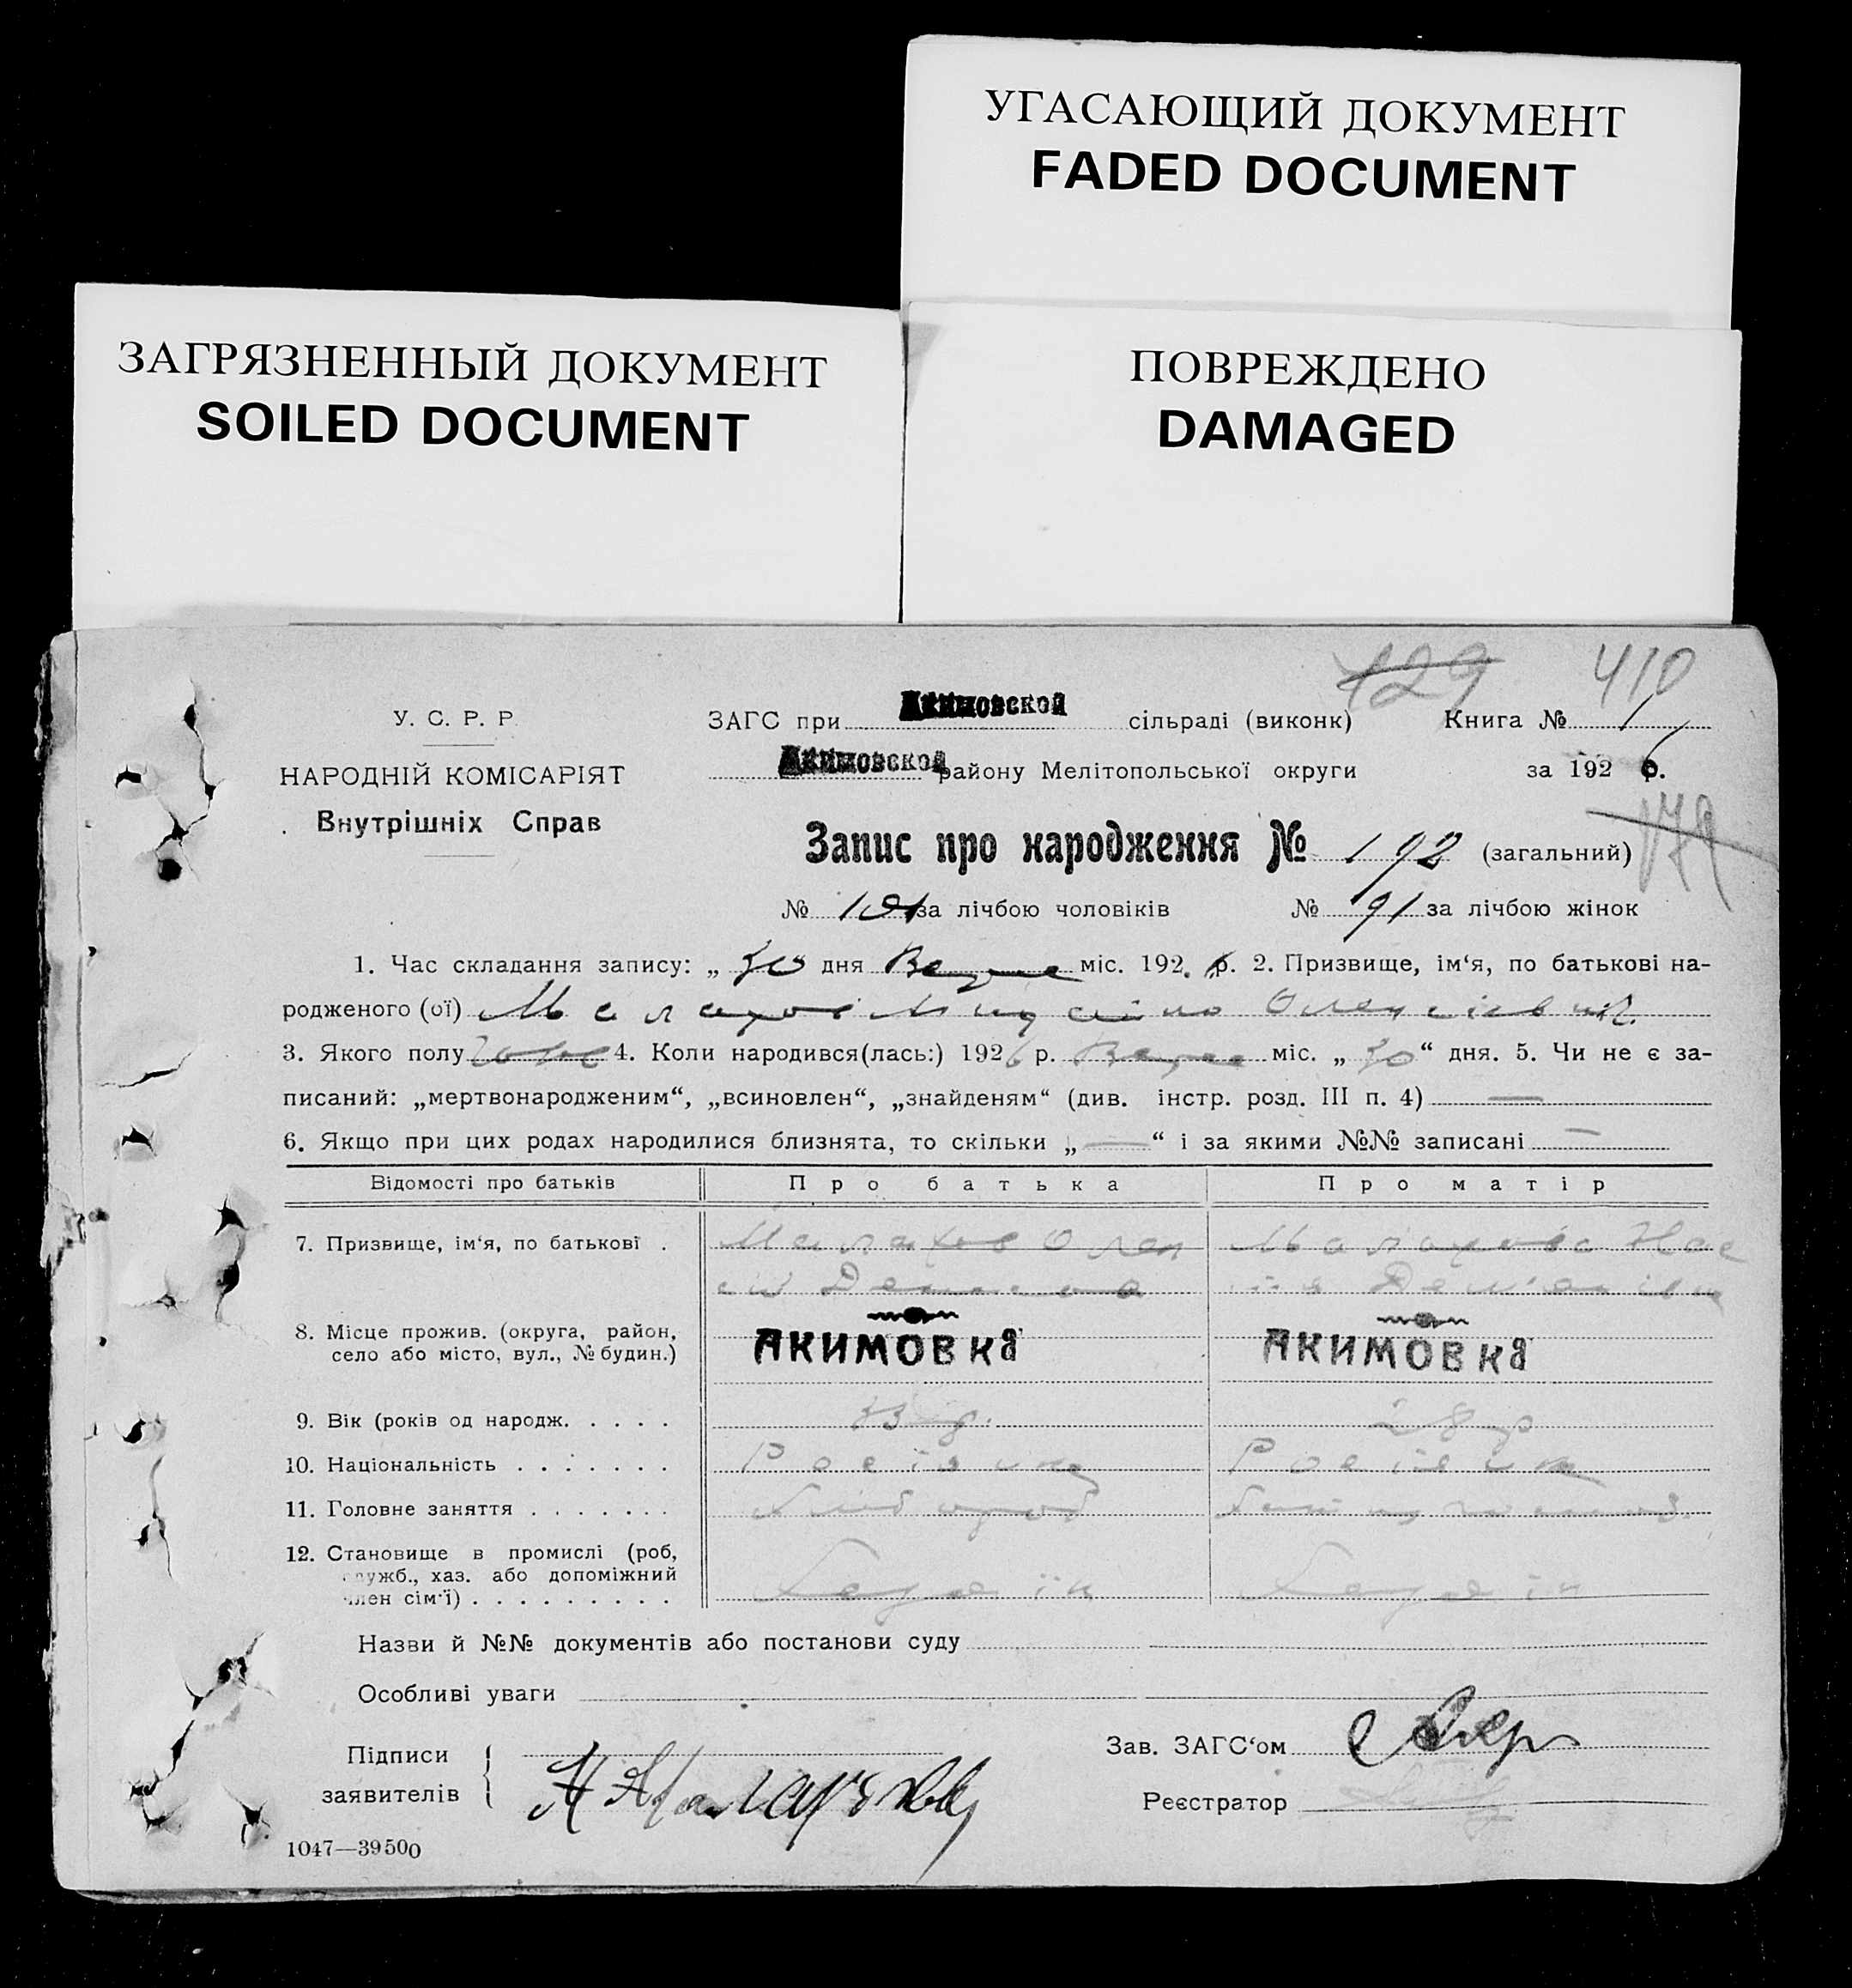 УГАСАЮЩИЙ ДОКУМЕНТ
FADED DOCUMENT
ЗАГРЯЗНЕННЫЙ ДОКУМЕНТ
SOILED DOCUMENT
ПОВРЕЖДЕНО
DAMAGED
129 410
У. С. Р. Р.
НАРОДНІЙ КОМІСАРІЯТ
Внутрішніх Справ
ЗАГС при Акимовской сільраді (виконк) Книга № 1
Акимовской району Мелітопольської округи за 192 6 р.
179
Запис про народження № 192 (загальний)
№ 101 за лічбою чоловіків № 91 за лічбою жінок
1. Час складання запису: „ 30 " дня міс. 192 р. 2. Призвище, ім‘я, по батькові на-
родженого (ої) Малахов Олексієвич
3. Якого полу 4. Коли народився(лась:) 1926 р. міс. „ 30 “ дня. 5. Чи не є за-
писаний: „мертвонародженим“, „всиновлен“, „знайденям“ (див. інстр. розд. III п. 4) —
6. Якщо при цих родах народилися близнята, то скільки „ — “ і за якими №№ записані —
Відомості про батьків Про батька Про матір
7. Призвище, ім‘я, по батькові . Малахов Олек Малахова Нас
8. Місце прожив. (округа, район,
село або місто, вул., № будин.)
АКИМОВКа АКИМОВКа
9. Вік (років од народж. . . . . 33 р. 28 р
10. Національність . . . . . . .
11. Головне заняття . . . . . . . Хлібороб
12. Становище в промислі (роб,
служб., хаз. або допоміжний
член сім‘ї) . . . . . . . . . Хазяїн Хазяїн
Назви й №№ документів або постанови суду
Особливі уваги
Підписи
заявителів
Зав. ЗАГС‘ом
Реєстратор
1047—39500